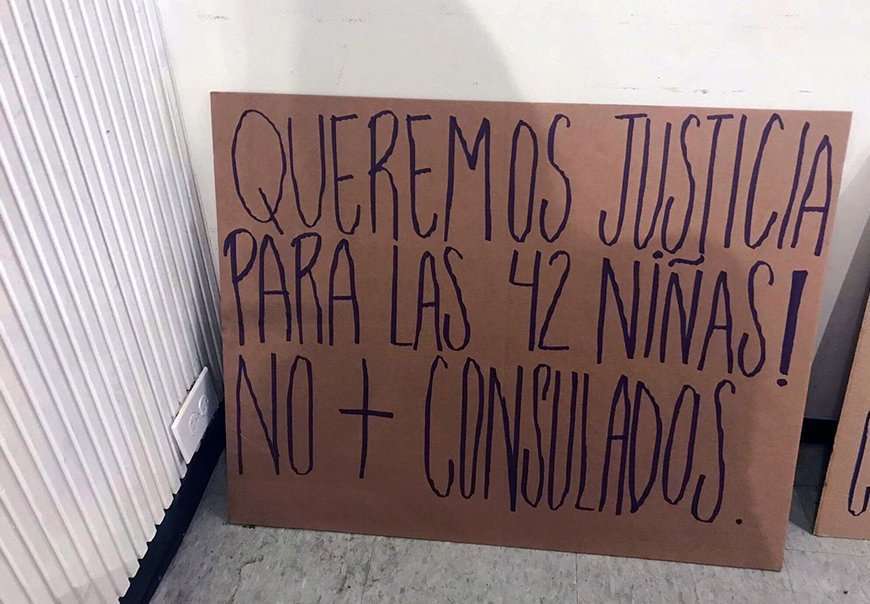 QUEREMOS JUSTICIA
PARA LAS 42 NiÑAS!
NO + CONSULADOS.